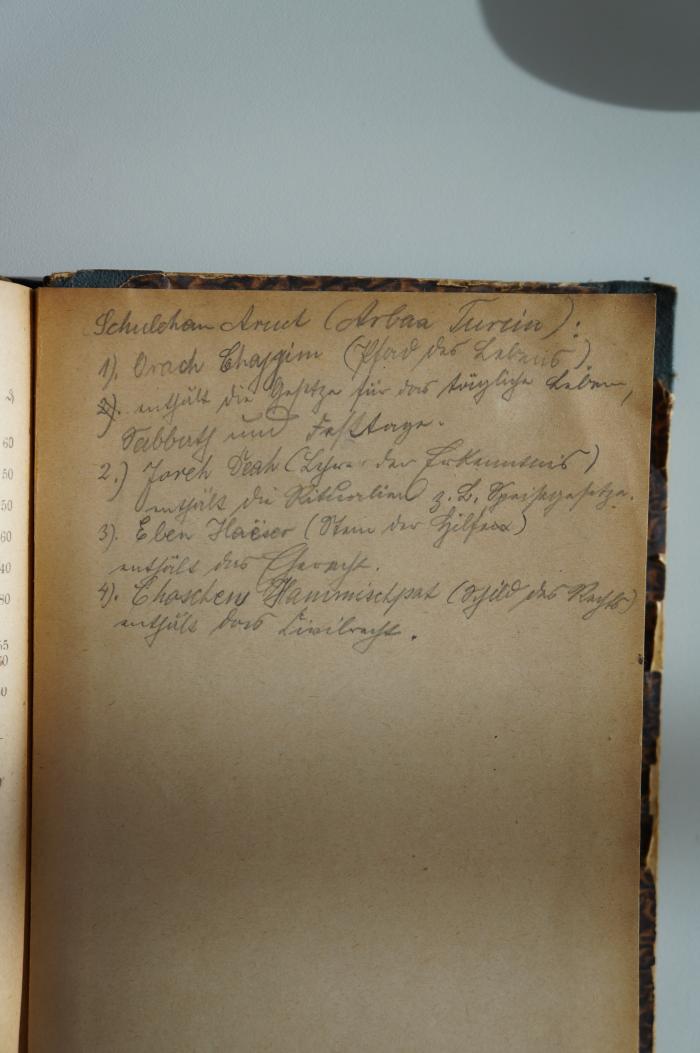 Schulchan Aruch (Arbaa Turim):
1). Orach Chajjim (Pfad des Lebens).
2). enthält die Gesetze für das tägliche Leben,
Sabbath und Festtage.
2.) Joreh Deah (Lehrer der Erkenntnis)
enthält die Ritualien z. B. Speisegesetze.
3). Eben Haëser (Stein der Hilfe)
enthält das Eherecht.
4). Choschen Hammischpat (Schild des Rechts)
enthält das Civilrecht.
60
50
50
60
40
80